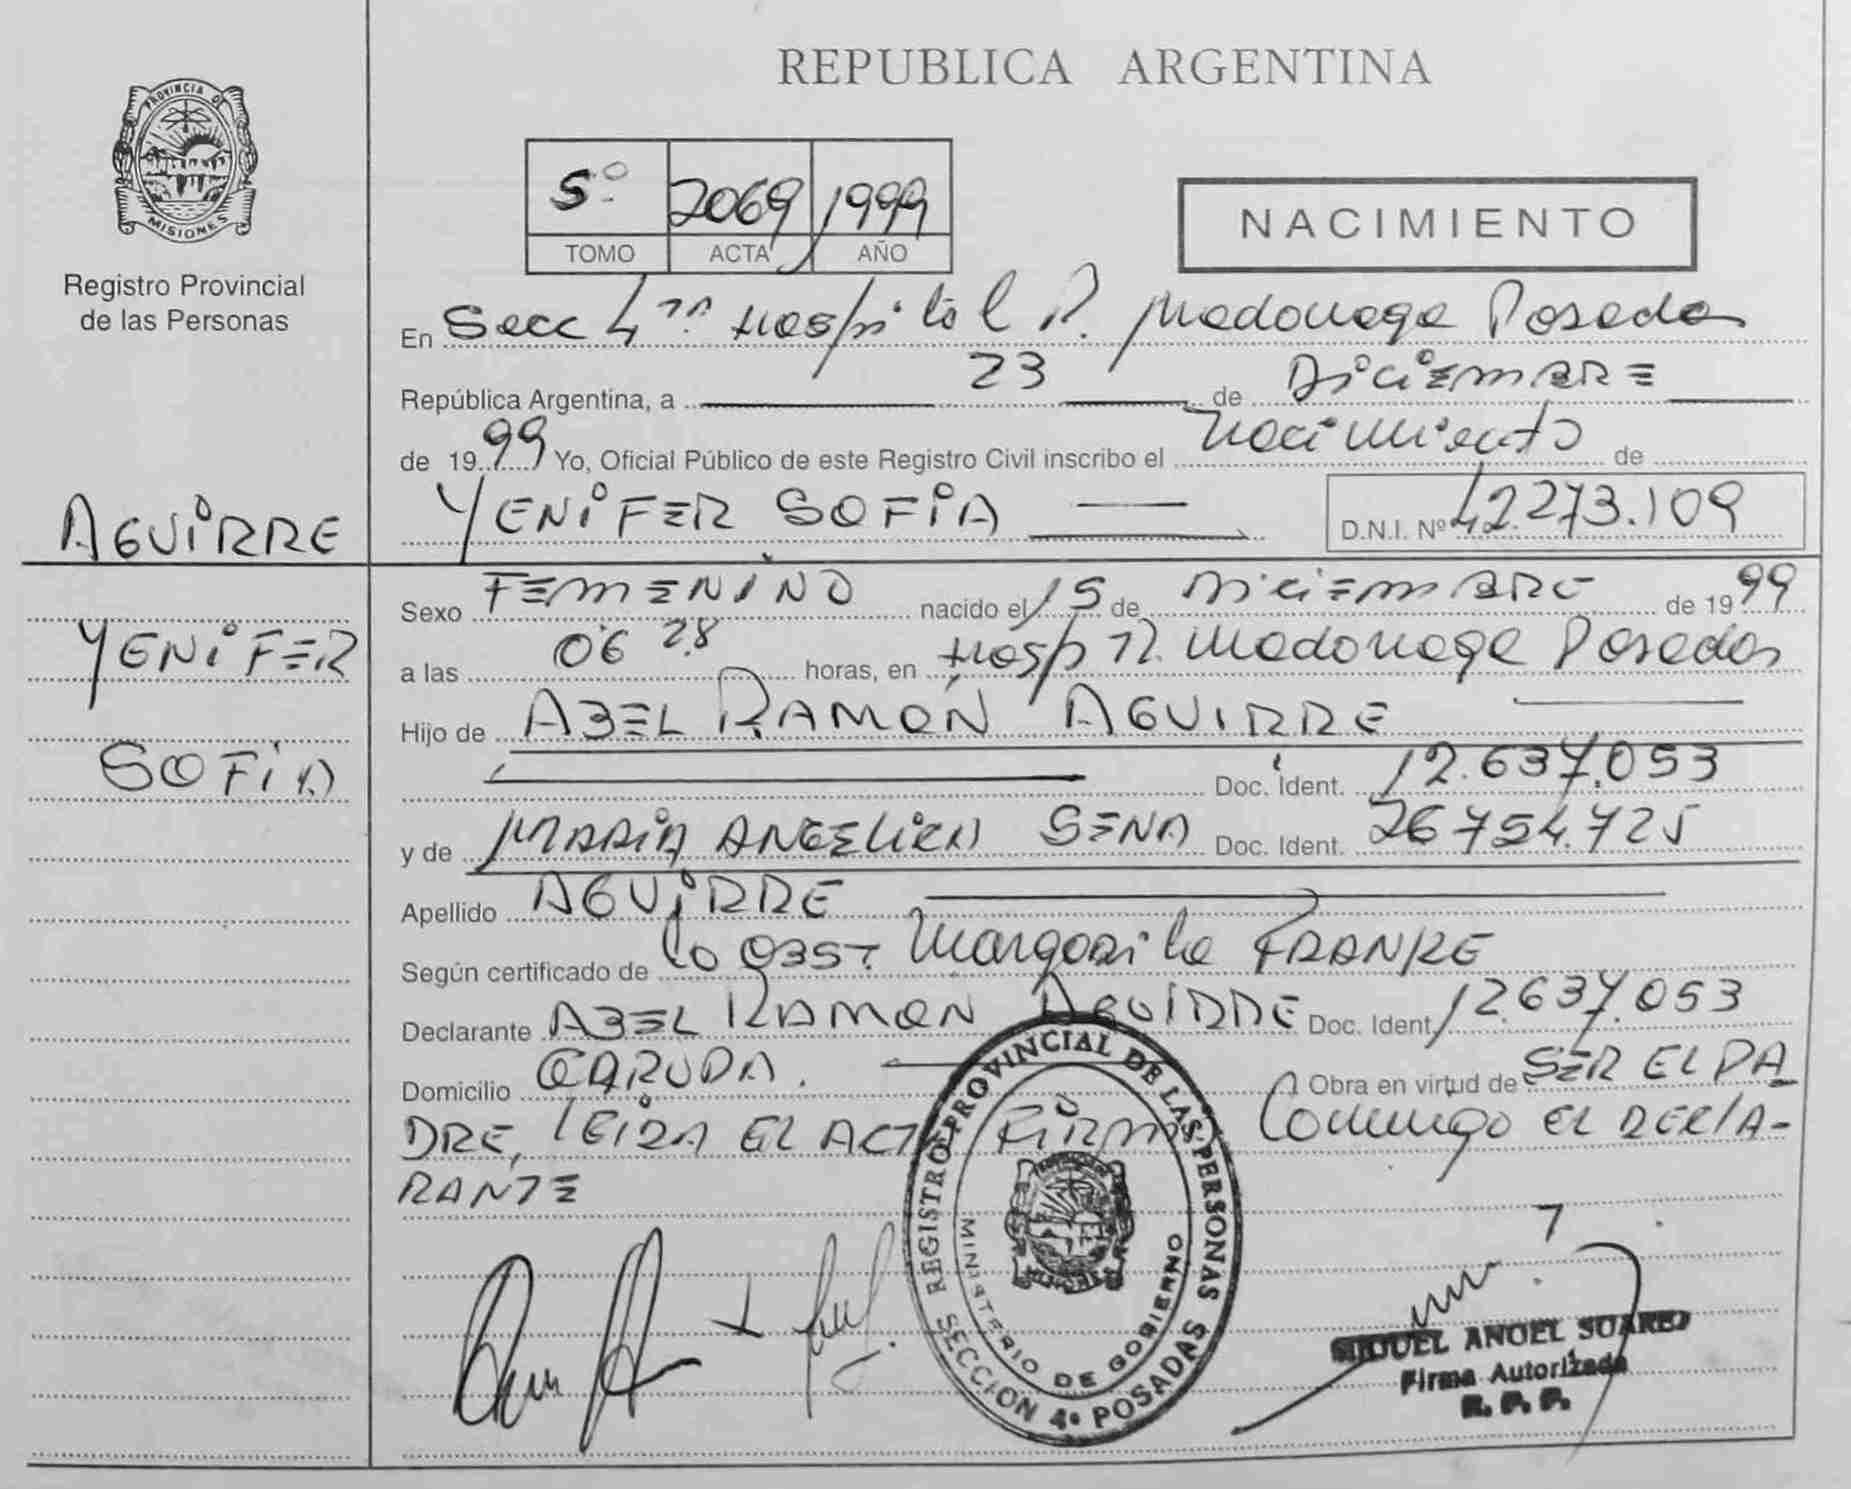 PROVINCIA DE
MISIONES
Registro Provincial
de las Personas
AGUIRRE
YENIFER
SOFIA
REPUBLICA ARGENTINA
5º 2069 1999
TOMO ACTA AÑO
NACIMIENTO
En Secc 4ta Hospital R. Madariaga Posadas
República Argentina, a 23 de DiCiEMBRE
de 1999 Yo, Oficial Público de este Registro Civil inscribo el Nacimiento de
YENiFER SOFiA D.N.I. Nº 42.273.109
Sexo FEMENINO nacido el 15 de DiCiEMBRE de 1999
a las 06 28 horas, en Hosp R. Madariaga Posadas
Hijo de ABEL RAMON AGUIRRE
Doc. Ident. 12.637.053
y de MARIA ANGELICA SENA Doc. Ident. 26.754.725
Apellido AGUiRRE
Según certificado de la OBST. Margarita FRANKE
Declarante ABEL RAMON AGUIRRE Doc. Ident 12.637.053
Domicilio GARUPA. Obra en virtud de SER EL PA
DRE, LEIDA EL ACTA FIRMA Conmigo EL DECLA-
RANTE
REGISTRO PROVINCIAL DE LAS PERSONAS
MINISTERIO DE GOBIERNO
SECCION 4ª POSADAS
MIGUEL ANGEL SUAREZ
Firma Autorizada
R. P. P.